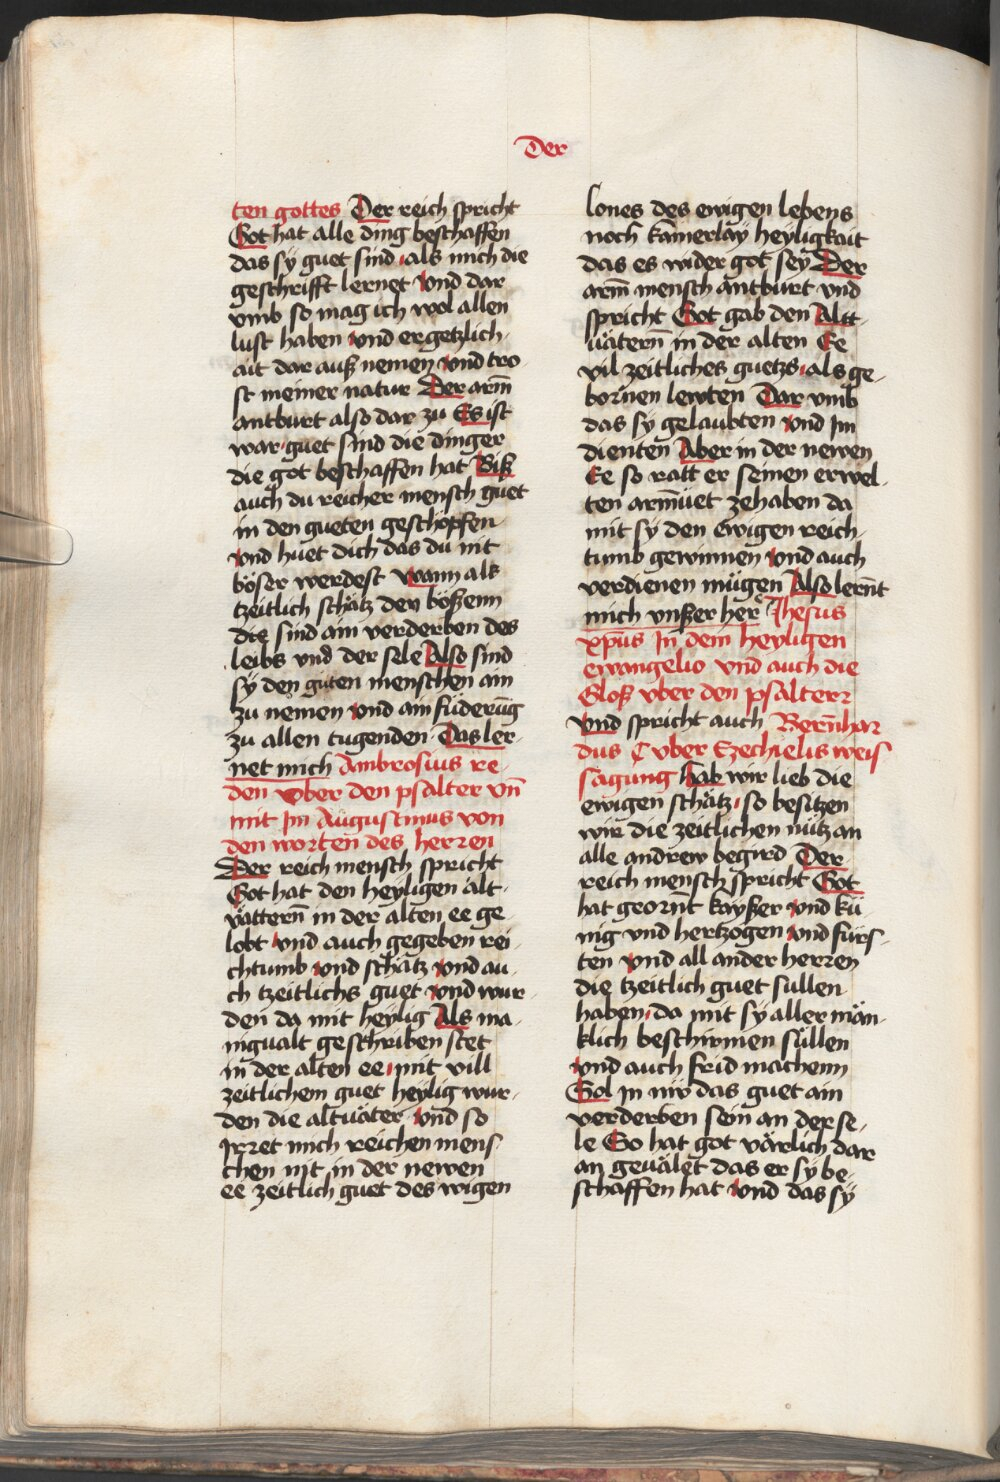 Der
ten gottes Der reich spricht
Got hat alle ding beschaffen
das sy guet sind als mich die
geschrifft lernet Vnd dar
vmb so mag ich wol allen
lust haben vnd ergetzlich
ait dar auß nemen vnd tro
st meiner natur Der arm̄
antburt also dar zu Es ist
war guet sind die dinger
die got beschaffen hat Biß
auch du reicher mensch guet
in den gueten geschöpfen
vnd huet dich das du nit
böser werdest Wann als
tzeitlich schätz den bößenn
die sind ain verderben des
leibs vnd der sele Also sind
sy den guten menschen ain
zu nemen vnd ain füderūg
zu allen tugenden Das ler
net mich Ambrosius re
den vber den psalter vn̄
mit Im Augustinus von
den worten des herren
Der reich mensch spricht
Got hat den heyligen alt
vättern̄ in der alten ee ge
lobt vnd auch gegeben rei
chtumb vnd schätz vnd au
ch tzeitlichs guet vnd wur
den da mit heylig Als ma
nigualt geschriben stet
in der alten ee mit vill
zeitlichem guet heylig wur
den die altuäter Vnd so
Irret mich reichen mens
chen nit in der newen
ee zeitlich guet des wigen
lones des ewigen lebens
noch kainerlay heyligkait
das es wider got sey Der
arm̄ mensch antburt vnd
spricht Got gab den Altt
uätern̄ in der alten Ee
vil zeitliches guetzs als ge
bornen lewten Dar vmb
das sy gelaubten vnd Im
dienten Aber in der newen
Ee so ratt er seinen erwel
ten arm̄uet zehaben da
mit sy den ewigen reich
tumb gewinnen vnd auch
verdienen mügen Also lern̄t
mich vnßer her Jhesus
xp̄us In dem heyligen
ewangelio vnd auch die
Gloß vber den psalterr
Vnd spricht auch Bern̄har
dus C vber Ezechielis weis
sagung hab wir lieb die
ewigen schätz so besitzen
wir die zeitlichen nütz an
alle andrew begird Der
reich mensch spricht Got
hat georn̄t kayßer vnd kü
nig vnd hertzogen vnd fürs
ten vnd all ander herren
die tzeitlich guet sullen
haben da mit sy aller män
klich beschirmen süllen
vnd auch frid machenn
Sol in nw das guet ain
verderben sein an der se
le So hat got värlich dar
an geuälet das er sy be
schaffen hat vnd das sy